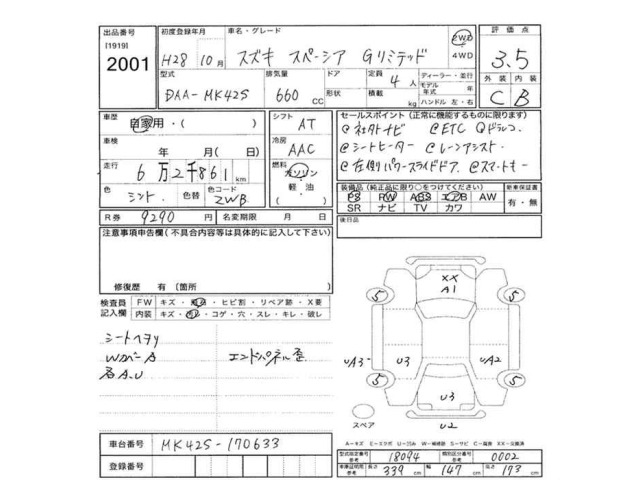 出品番号 初度登録年月 車名・グレード 評価点
[1919] 2001 H28 10月 スズキ スペーシア Gリミテッド 2WD 4WD 3.5
型式 排気量 ドア 定員 ディーラー・並行 外装 内装
DAA-MK42S 660 CC 形状 4人 積載 kg モデル年式 年 ハンドル 左・右 C B
車歴 自家用・( ) シフト AT セールスポイント(正常に機能するものに限ります)
車検 年 月( 日) 冷房 AAC @社外ナビ @ETC @ドラレコ
走行 6万2千861km 燃料 ガソリン 軽油 ( ) @シートヒーター @レーンアシスト
@左側パワースライドドア. @スマートキー
色 ミント. 色替 色コード ZWB
装備品(純正品に限り○をつけてください) 新車保証書
PS PW ABS エアB AW 有・無
SR ナビ TV カワ
R券 9290円 名変期限 月 日 後日品
注意事項申告欄(不具合内容等は具体的に記入して下さい)
修復歴 有(箇所 )
検査員記入欄 FW キズ・ ・ヒビ割・リペア跡・X要
内装 キズ・ ・コゲ・穴・スレ・キレ・破レ
シートヘタリ
Wカバー A エンドパネル歪
A.U
XX
A1
5 5
UA3 U3 UA2
5 5
U3
スペア U2
A-キズ E-エクボ U-凹み W-補修跡 S-サビ C-腐蝕 XX-交換済
車台番号 MK42S-170633 型式指定番号 参考 18094 類別区分番号 参考 0002
登録番号 車庫証明用 参考 長さ 339 cm 幅 147 cm 高さ 173 cm